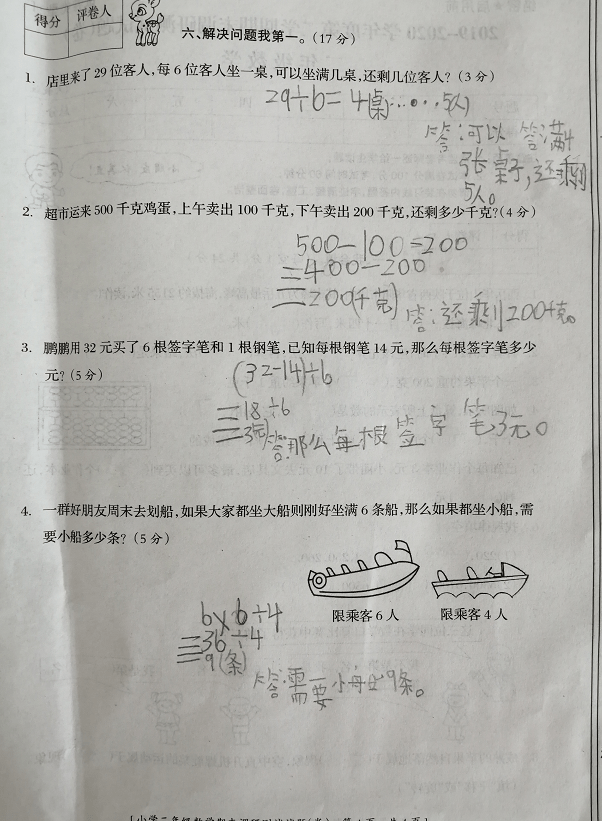 得分 评卷人
六、解决问题我第一。(17 分)
1. 店里来了 29 位客人,每 6 位客人坐一桌,可以坐满几桌,还剩几位客人?(3 分)
29÷6=4(桌)……5(人)
答:可以答满4
张桌子,还剩
5人。
2. 超市运来 500 千克鸡蛋,上午卖出 100 千克,下午卖出 200 千克,还剩多少千克?(4 分)
500-100=200
=400-200
=200(千克)
答:还乘刂200千克。
3. 鹏鹏用 32 元买了 6 根签字笔和 1 根钢笔,已知每根钢笔 14 元,那么每根签字笔多少
元?(5 分)
(32-14)÷6
=18÷6
=3(元)
答:那么每根签字笔3元。
4. 一群好朋友周末去划船,如果大家都坐大船则刚好坐满 6 条船,那么如果都坐小船,需
要小船多少条?(5 分)
限乘客 6 人 限乘客 4 人
6×6÷4
=36÷4
=9(条)
答:需要小船9条。